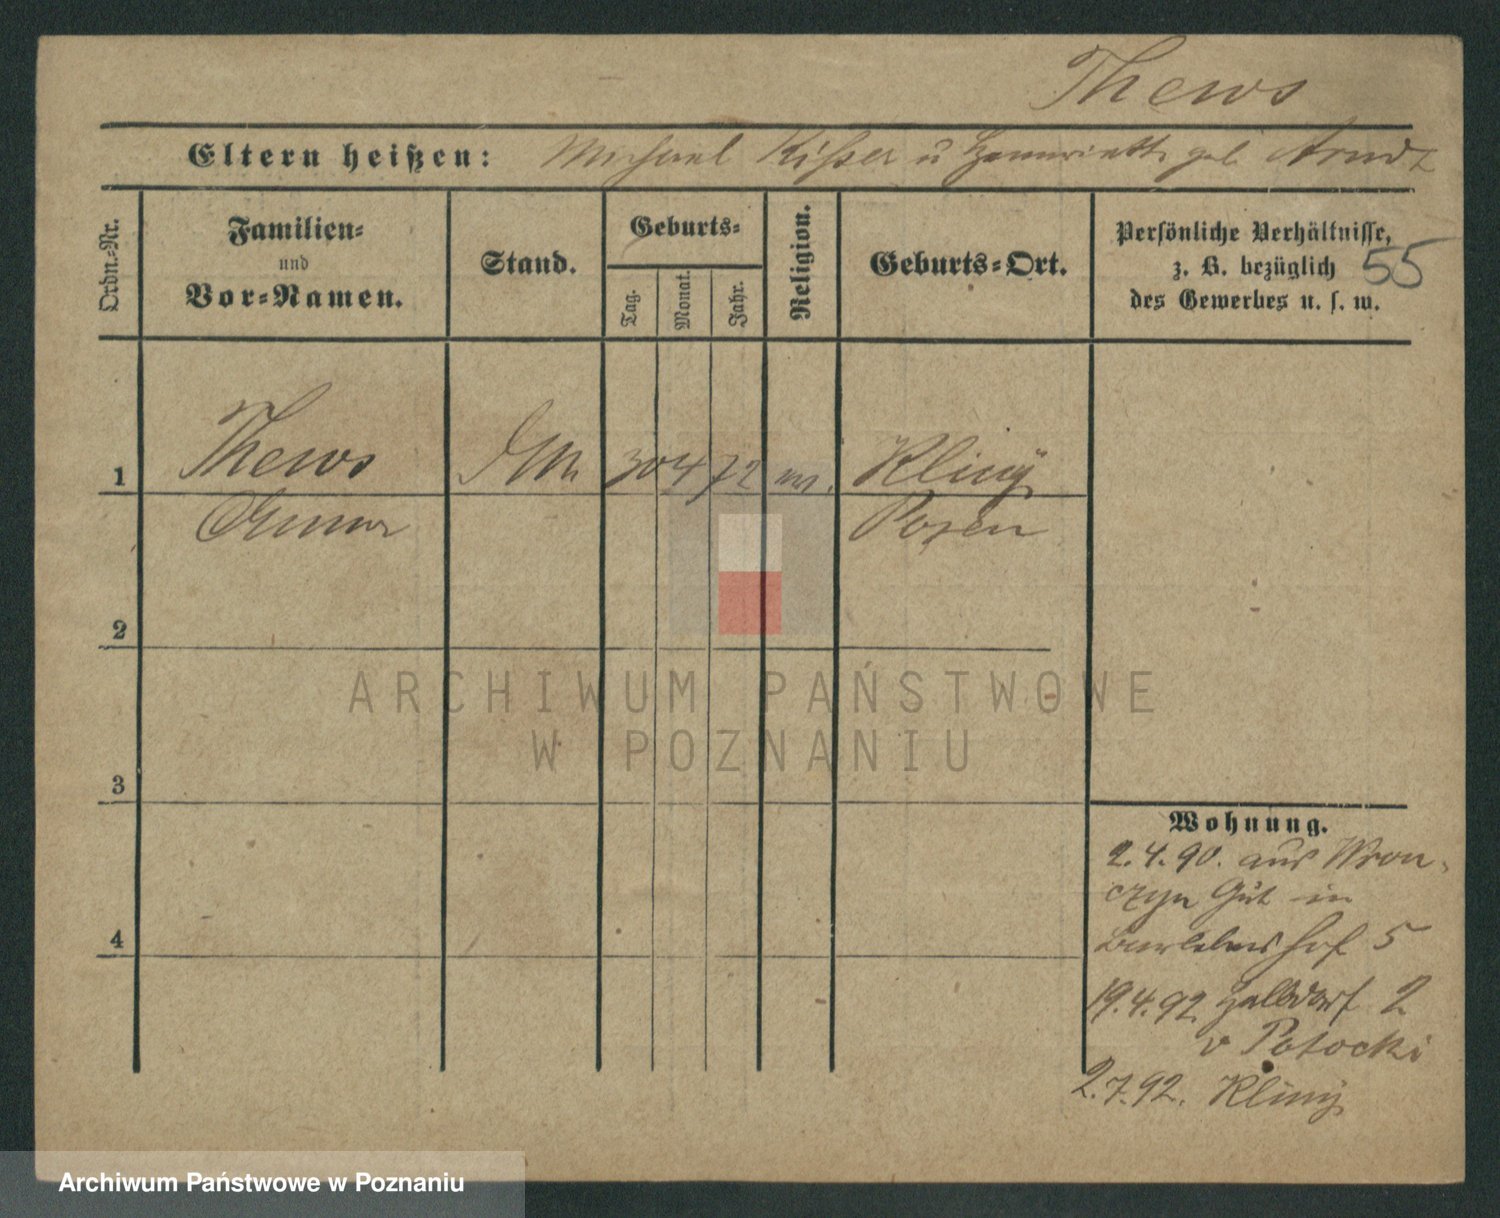 Thews
Eltern heißen: Michael Kißer u Henriette geb. Arndt
Ordn.-Nr.
Familien-
und
Vor-Namen.
Stand.
Geburts-
Tag.
Monat.
Jahr.
Religion.
Geburts-Ort.
Persönliche Verhältnisse,
z. B. bezüglich
des Gewerbes u. s. w.
55
1 Thews 30 4 72 ev. Kliny
Posen
2
3
4
Wohnung.
2.4.90. aus Wron-
czyn Gut in
hof 5
19.4.92 2
v Potocki
2.7.92. Kliny
ARCHIWUM PAŃSTWOWE
W POZNANIU
Archiwum Państwowe w Poznaniu